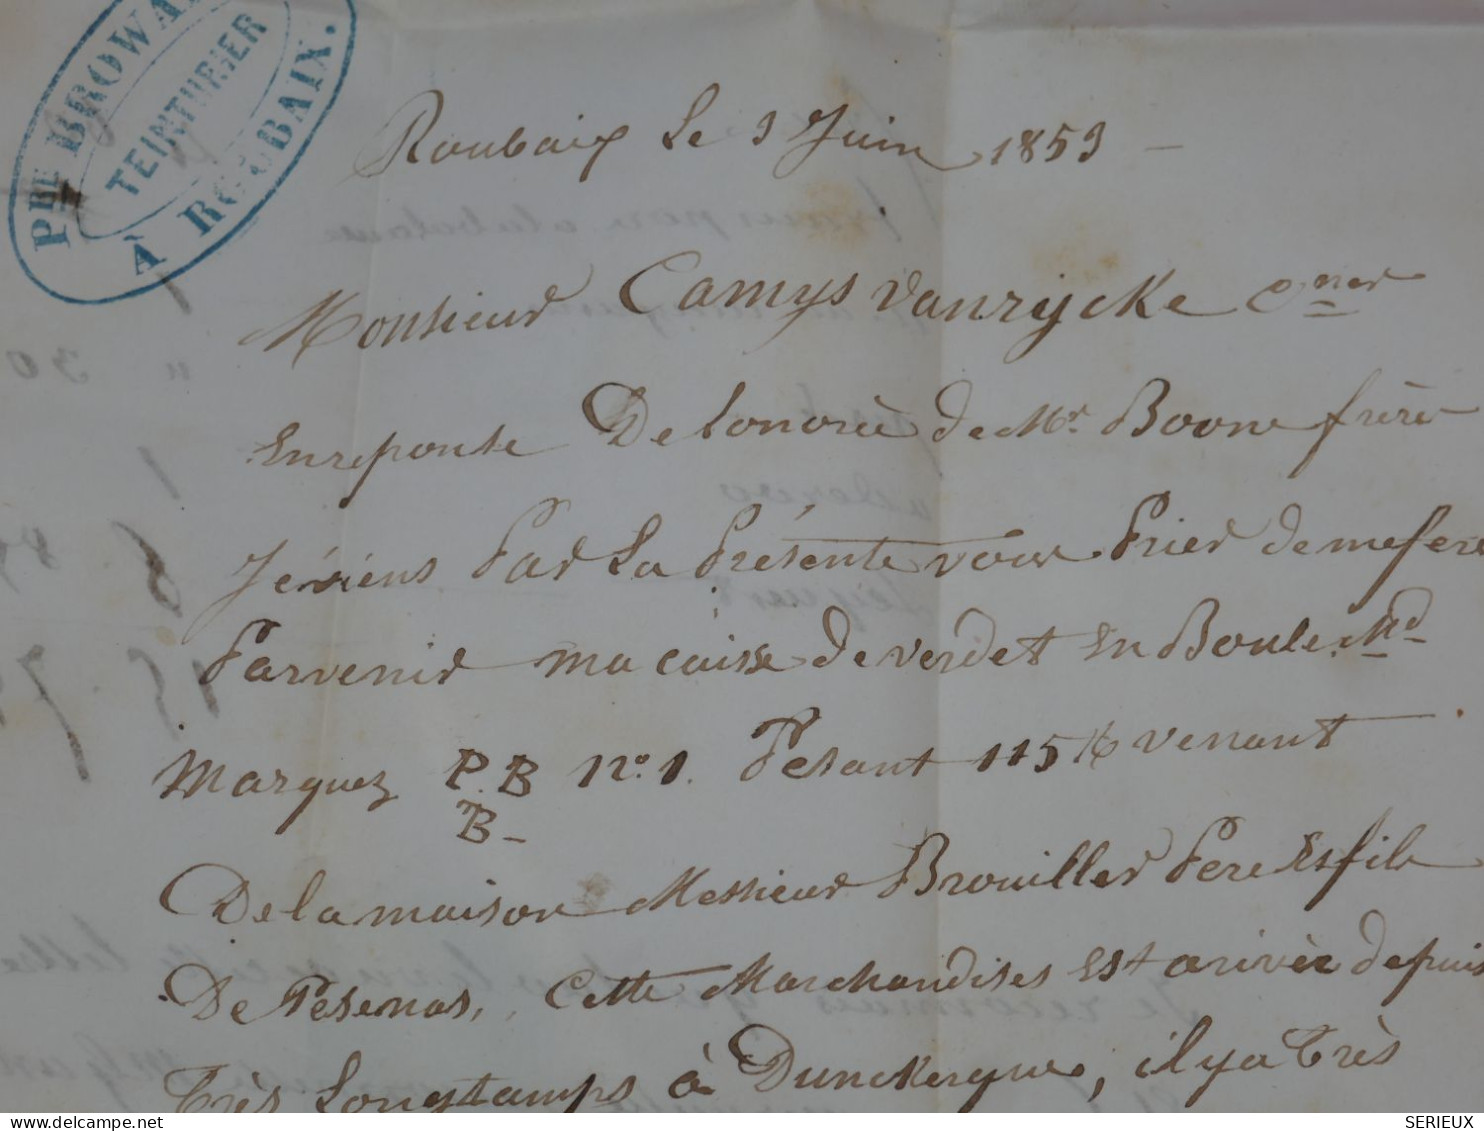 PRE BROWA
TEINTURIER
À ROUBAIX.
Roubaix Le 9 Juin 1859 -
Monsieur Camys Vanrycke
En reponse De Lonorée de Mr. Boone frère
Je viens Par La Présente vous Prier de me fere
Parvenir ma caisse de verdet En Boule
Marquez P.B No. 1. Pesant 115 K venant
B-
De la maison Messieur Brouiller Pere Es fils
De Pésenas, Cette Marchandises Est arivée depuis
Très Longtamps à Dunckerque, il y a Très
SERIEUX